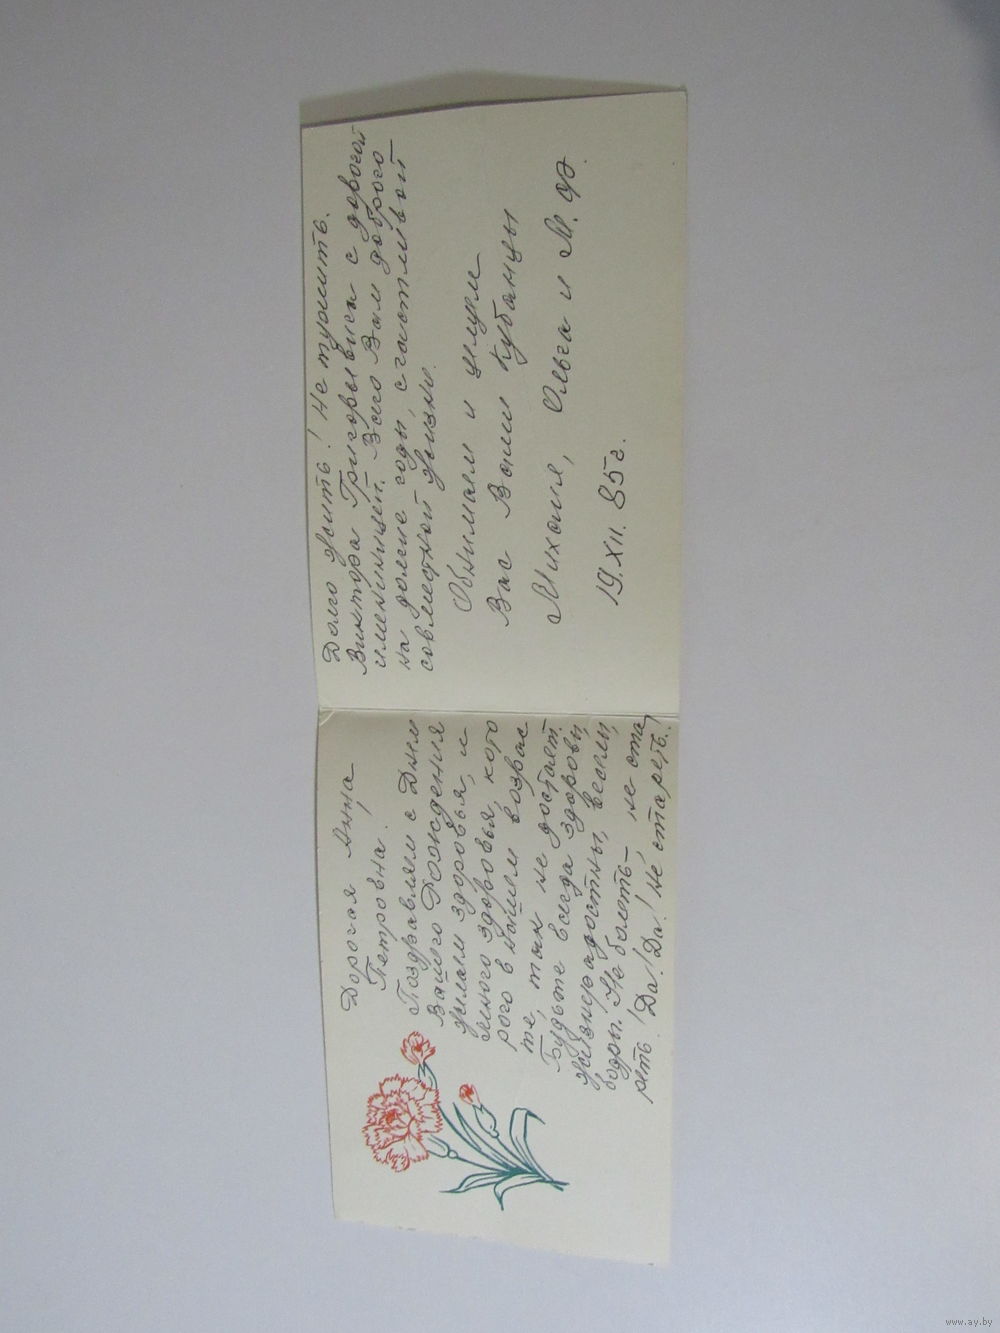 Дорогая Анна
Петровна!
Поздравляем с Днем
Вашего Рождения
Желаем здоровья, и
много здоровья, кото
рого в нашем возрас
те, так не достает.
Будьте всегда здоровы,
жизнерадостны, веселы,
бодры. Не болеть – не ста
реть! Да! Да! Не стареть!
Долго жить! Не тужить.
Виктора Григорьевича с дорогой
именинницей. Всего Вам доброго
на долгие годы, счастливой
совместной жизни.
Обнимаем и целуем
Вас Ваши Кубанцы
Михаил, Ольга и М. Ф.
19.XII.85г.
www.ay.by